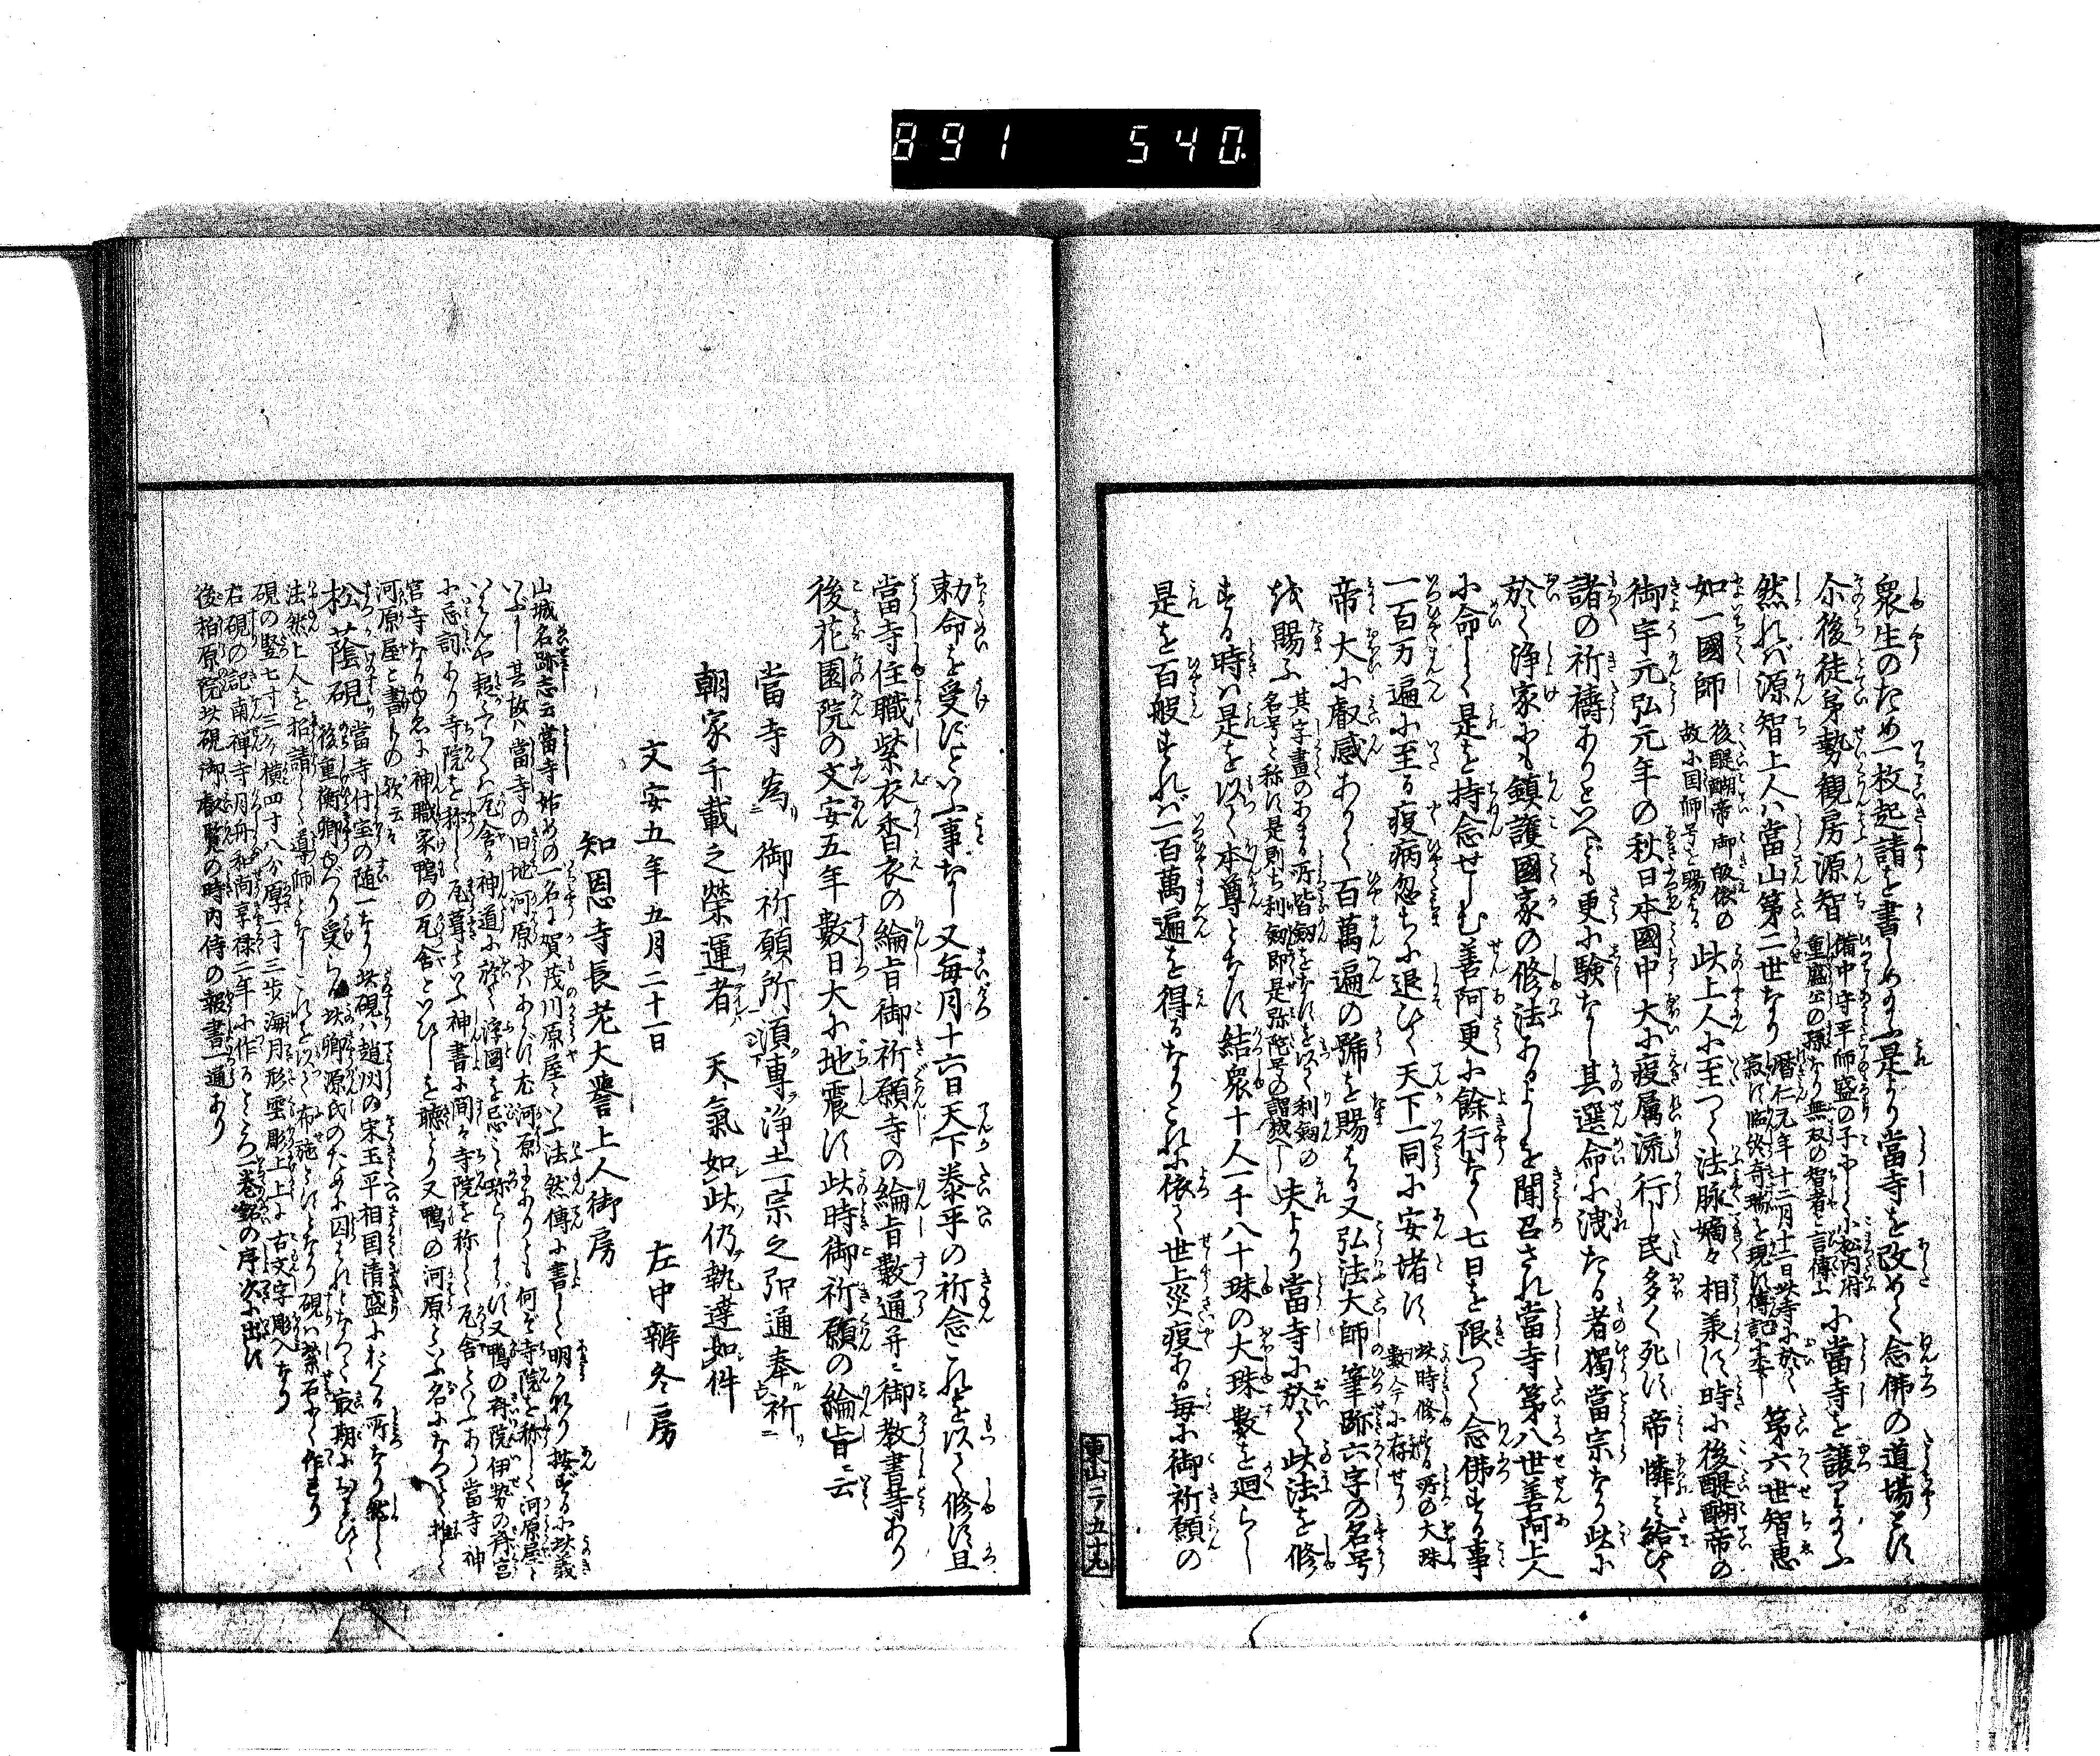 891 540
衆生のため一枚起請を書しめ給ふ是より當寺を改めて念佛の道場とす
尓後徒弟勢観房源智
備中守平師盛の子にして小松内府
重盛公の孫なり無双の智者と言傳ふ
に當寺を譲り給ふ
然れば源智上人ハ當山第二世なり
暦仁元年十二月十二日此寺に於て
寂す臨終寺瑞を現す傳記に委し
第六世智恵
如一國師
後醍醐帝御皈依の
故に国師号を賜る
此上人に至つて法脉嫡々相羕す時に後醍醐帝の
御宇元弘元年の秋日本國中大に疫厲流行し民多く死す帝憐ミ給ひて
諸の祈禱ありといへども更に験なし其選命に洩たる者獨當宗なり此に
於て浄家にも鎮護國家の修法あるよしを聞召され當寺第八世善阿上人
に命して是を持念せしむ善阿更に餘行なく七日を限つて念佛する事
一百万遍に至る疫病忽ちに退ひて天下一同に安堵す
此時修する所の大珠
數今に存せり
帝大に叡感ありて百萬遍の號を賜はる又弘法大師筆跡六字の名号
を賜ふ
其字畫のある所皆劔をなすを以て利劔の
名号と称す是則ち利劔即是弥陀号の謂成べし
夫より當寺に於て此法を修
する時ハ是を以て本尊となす結衆十人一千八十珠の大珠數を廻らし
是を百般すれバ一百萬遍を得るなりこれに依て世上災疫ある毎に御祈願の
東山二ノ五十九
勅命を受ずといふ事なし又毎月十六日天下泰平の祈念これを以て修す且
當寺住職紫衣香衣の綸旨御祈願寺の綸旨數通并ニ御教書等あり
後花園院の文安五年數日大に地震す此時御祈願の綸旨ニ云
當寺為御祈願所須專浄土一宗之弘通奉祈
朝家千載之榮運者 天氣如此仍執達如件
文安五年五月二十一日 左中辨冬房
知恩寺長老大譽上人御房
山城名跡志云當寺始めの一名ヲ賀茂川原屋といふ法然傳に書して明らか也按ずるに此義
官寺なりゆゑに神職家鴨の瓦舎といひしを聴とり又鴨の河原といふ名になりて推して
河原屋と書しもの歟云々
松蔭硯 當寺什宝の随一なり此硯ハ趙州の宋玉平相国清盛におくる所なり然して
後重衡卿ゆづり受らる此卿源氏のために囚はれとなりて最期にちかひて
法然上人を招請して導師となしこれを以て布施とすとなり硯ハ紫石にて作まり
硯の竪七寸三分横四寸八分厚一寸三歩海月形雲彫上に古文字彫入なり
右硯の記南禅寺月舟和尚享禄二年に作るところ一巻銘の序次に出す
後柏原院此硯御叡覧の時内侍の報書一通あり